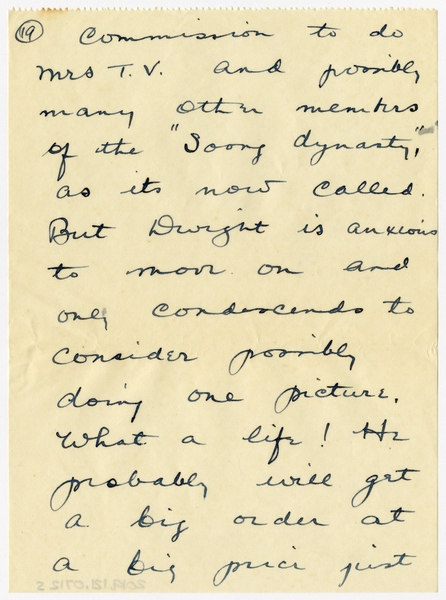 19
Commission to do
Mrs T.V. and possibly
many other members
of the "Soong dynasty",
as its now called.
But Dwight is anxious
to move on and
only condescends to
consider possibly
doing one picture.
What a life! He
probably will get
a big order at
a big price just
2019.12.0712 S